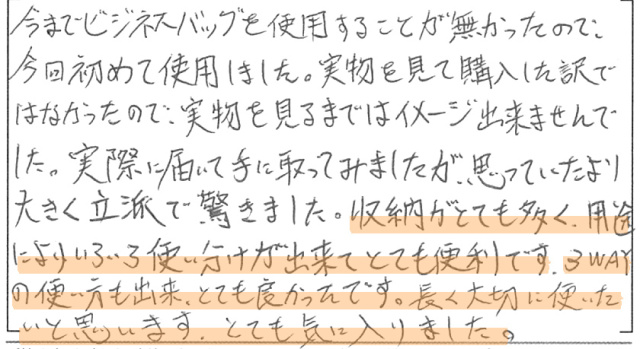 今までビジネスバッグを使用することが無かったので、
今回初めて使用しました。実物を見て購入した訳で
はなかったので、実物を見るまではイメージ出来ませんで
した。実際に届いて手に取ってみましたが、思っていたより
大きく立派で驚きました。収納がとても多く、用途
によりいろいろ使い分けが出来てとても便利です。3WAY
の使い方も出来、とても良かったです。長く大切に使いた
いと思います。とても気に入りました。